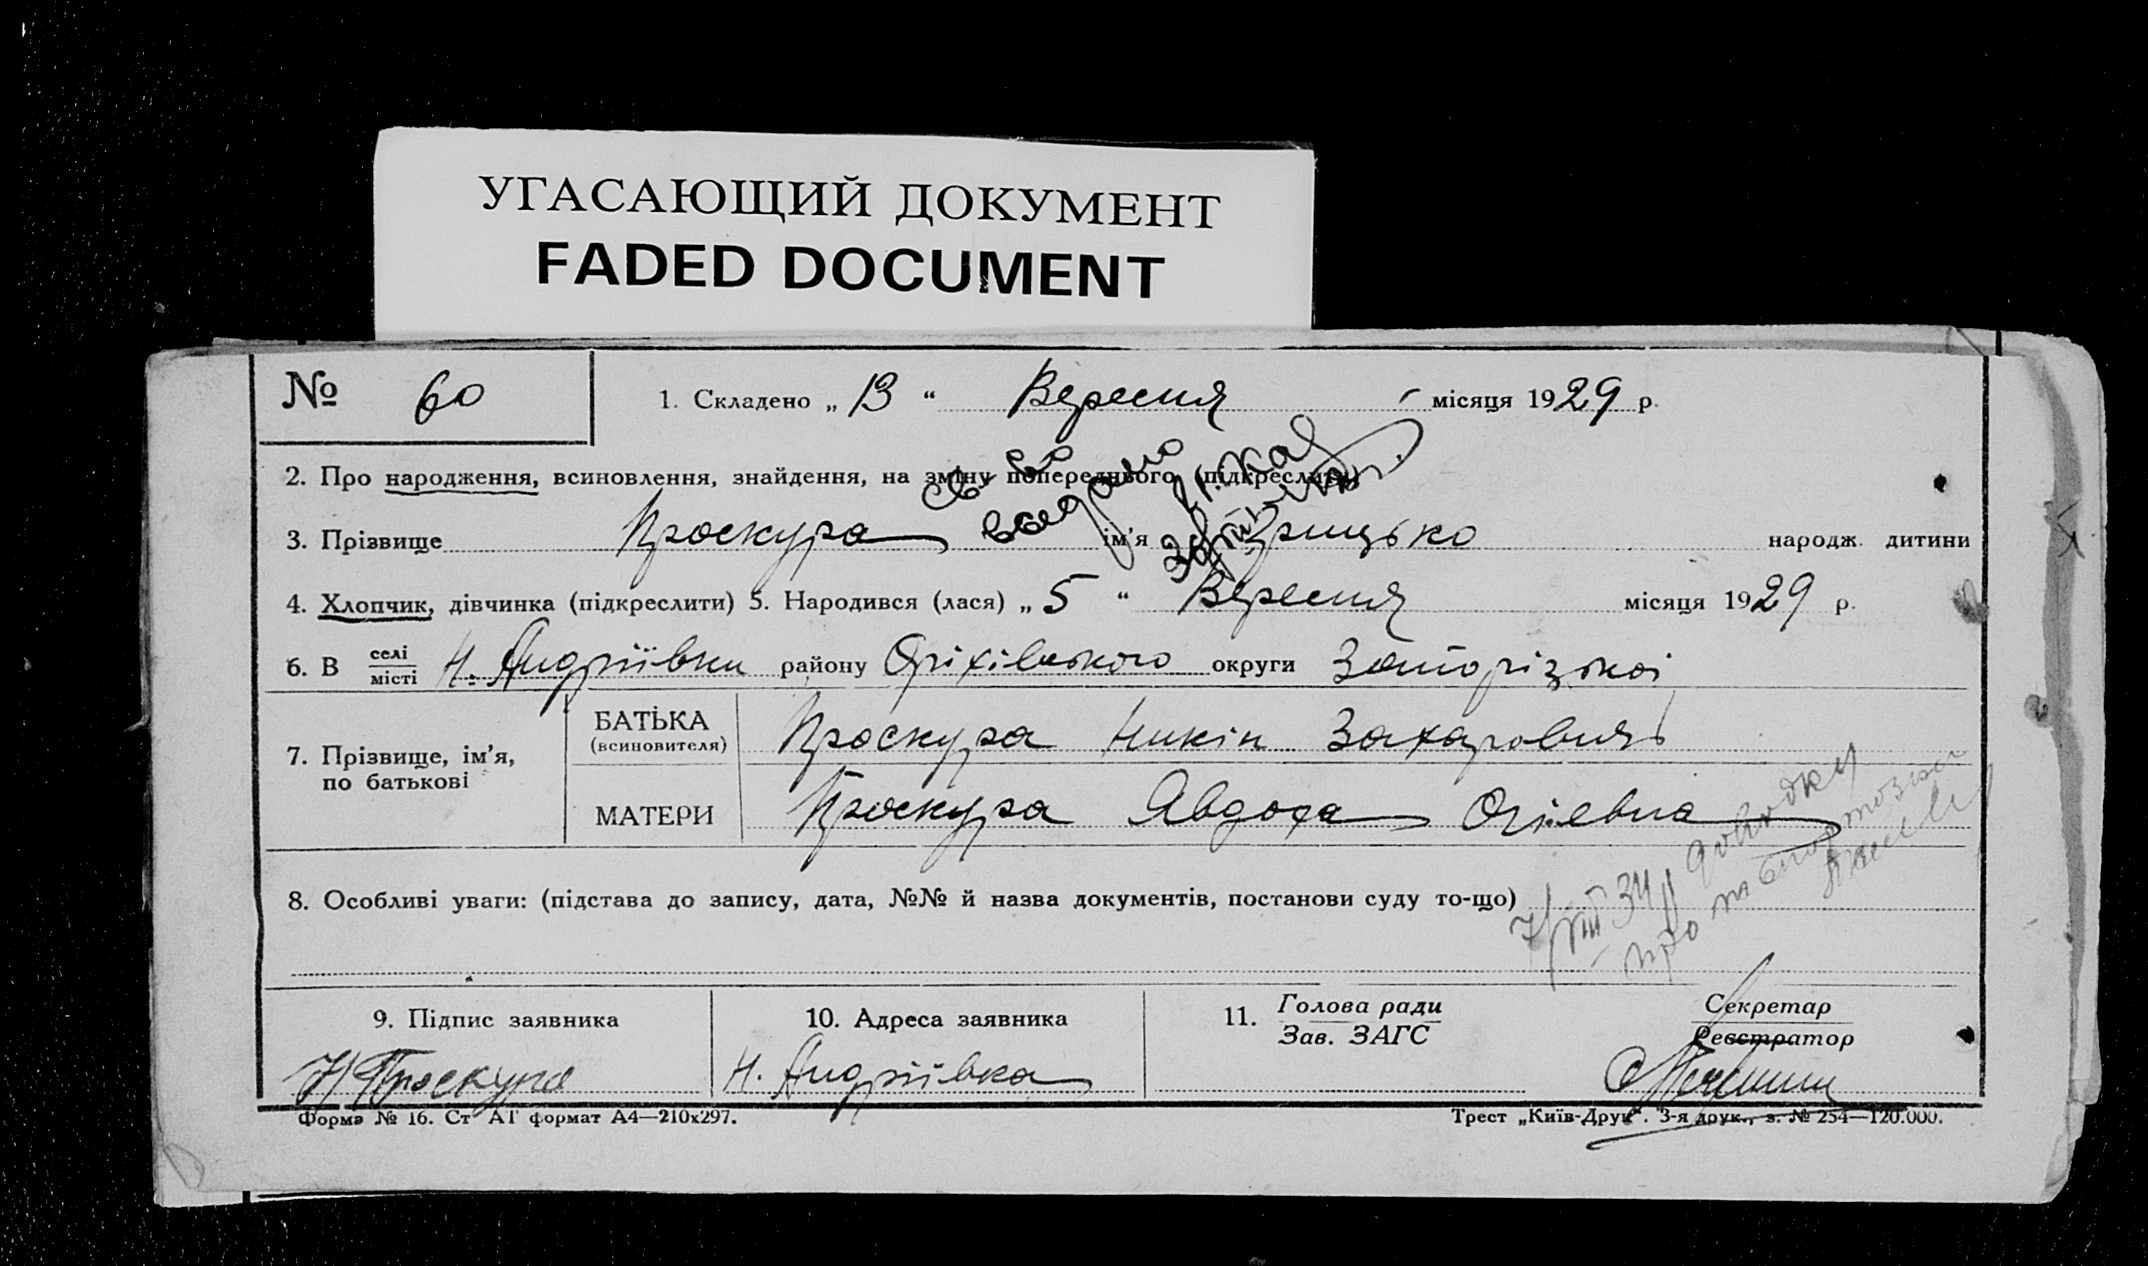 УГАСАЮЩИЙ ДОКУМЕНТ
FADED DOCUMENT
№ 60
1. Складено „ 13 “ Вересня місяця 1929 р.
2. Про народження, всиновлення, знайдення, на зміну попереднього (підкреслити)
3. Прізвище Проскура ім'я Грицько народж. дитини
4. Хлопчик, дівчинка (підкреслити) 5. Народився (лася) „ 5 “ Вересня місяця 1929 р.
6. В селі
місті Н. Андріївки району Оріхівського округи Запорізької
7. Прізвище, ім'я,
по батькові
БАТЬКА
(всиновителя)
Проскура Никін Захарович
МАТЕРИ
Проскура Явдоха
8. Особливі уваги: (підстава до запису, дата, №№ й назва документів, постанови суду то-що)
9. Підпис заявника
Н Проскура
10. Адреса заявника
Н. Андріївка
11. Голова ради
Зав. ЗАГС
Секретар
Реєстратор
Форма № 16. Ст АТ формат А4—210х297.
Трест „Київ-Друк“. 3-я друк., з. № 254—120.000.